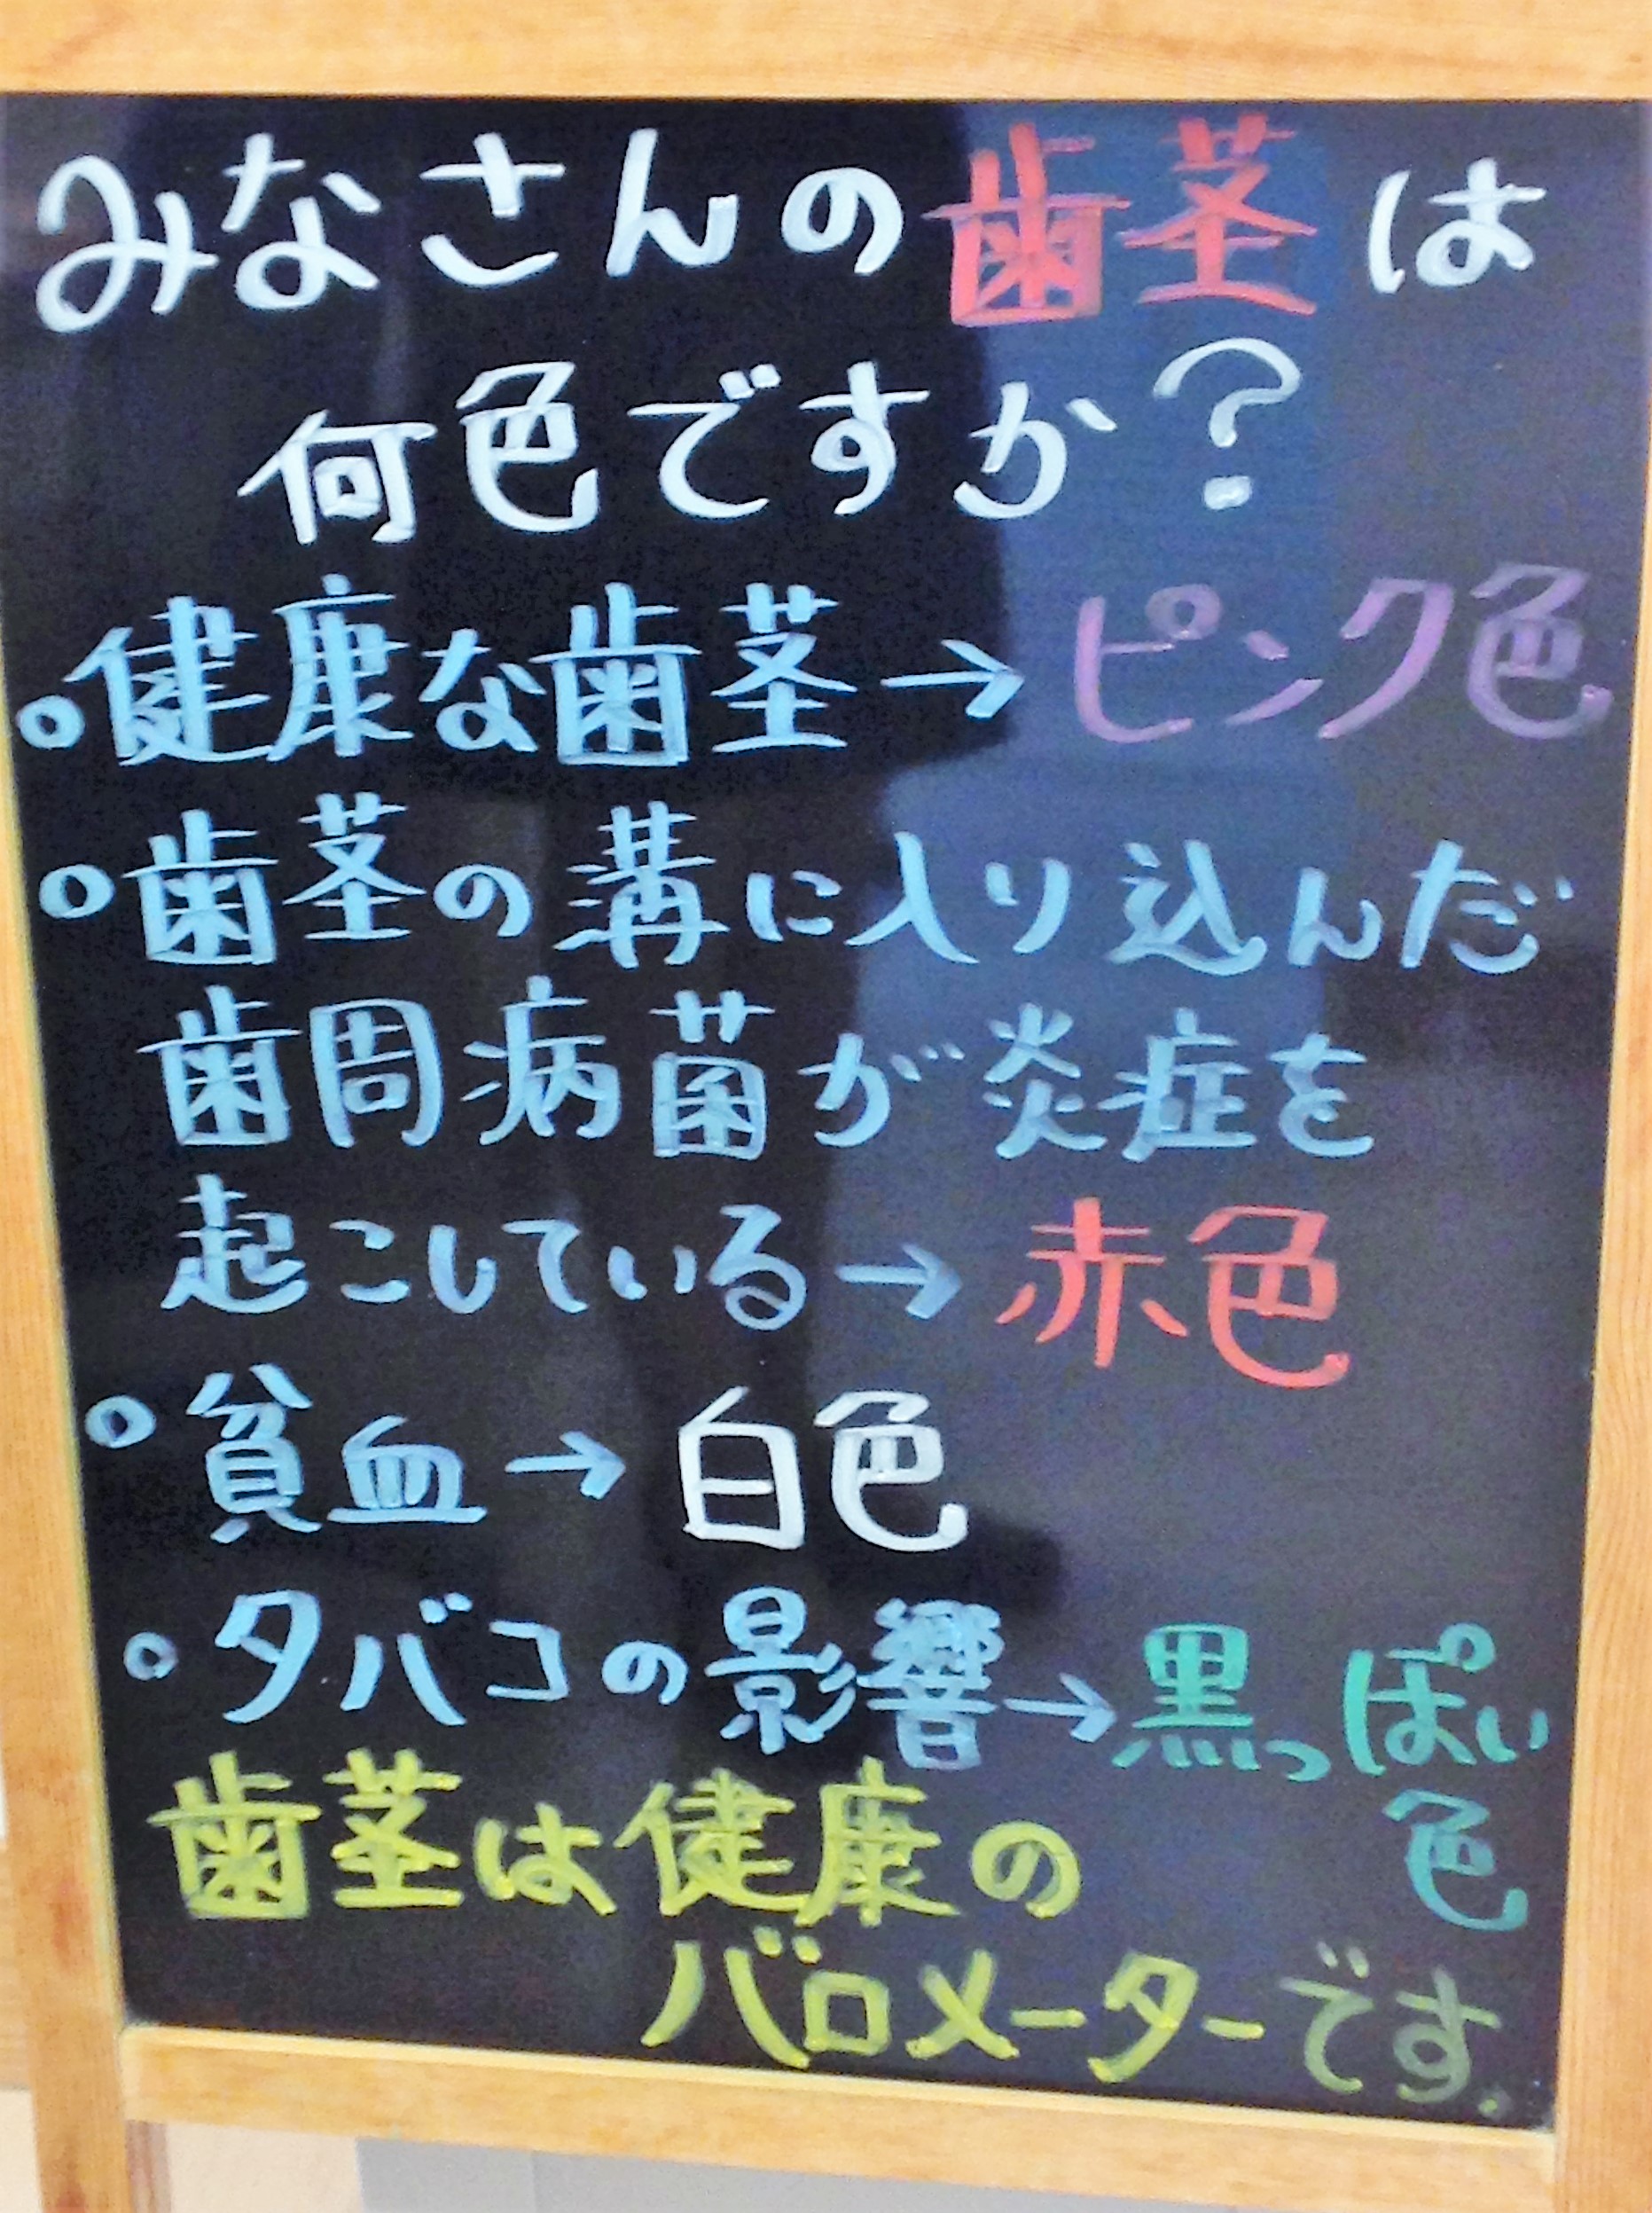 みなさんの歯茎は
何色ですか?
○健康な歯茎→ピンク色
○歯茎の溝に入り込んだ
歯周病菌が炎症を
起こしている→赤色
○貧血→白色
○タバコの影響→黒っぽい
色
歯茎は健康の
バロメーターです.